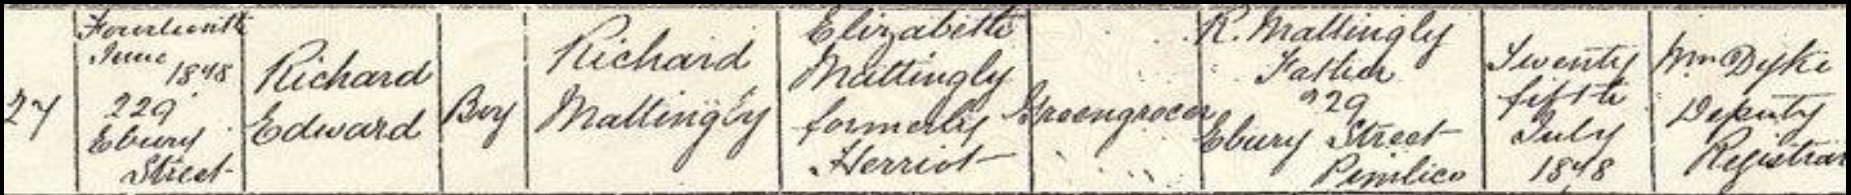 27
Fourteenth
June
1848
229
Ebury
Street
Richard
Edward
Boy
Richard
Mattingly
Elizabeth
Mattingly
formerly
Herriot
Greengrocer
R. Mattingly
Father
229
Ebury Street
Pimlico
Twenty
fifth
July
1848
Wm Dyke
Deputy
Registrar